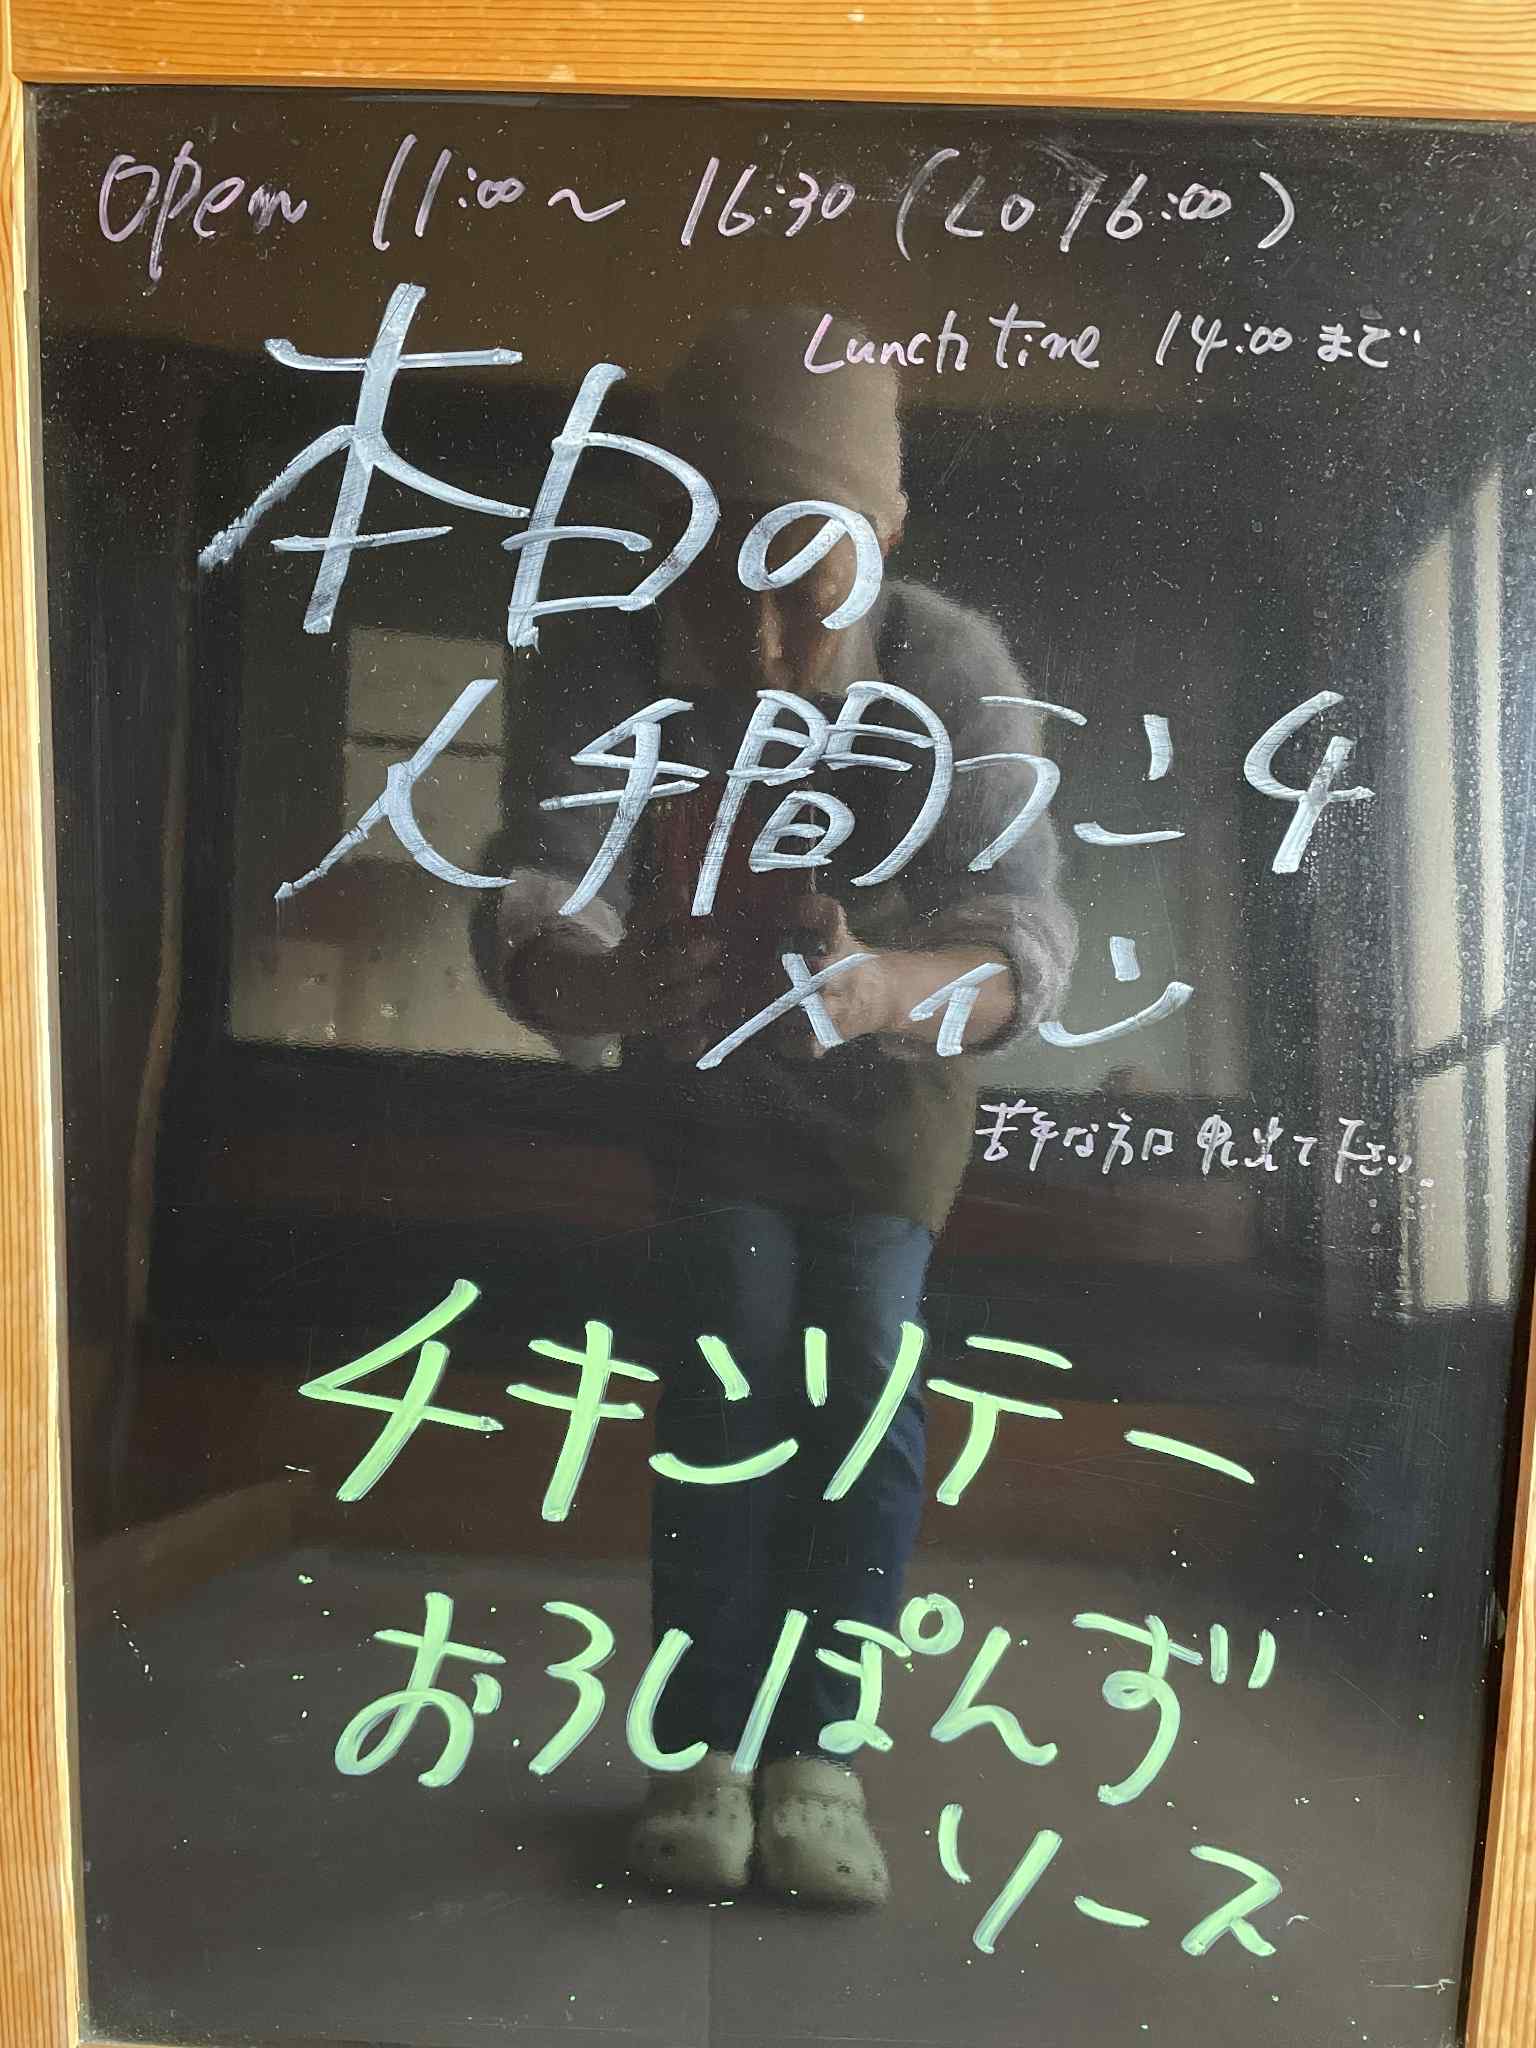 open 11:00〜16:30(LO16:00)
Lunch time 14:00まで
本日の
人手間ランチ
メイン
苦手な方は申出て下さい。
チキンソテー
おろしぽんず
ソース